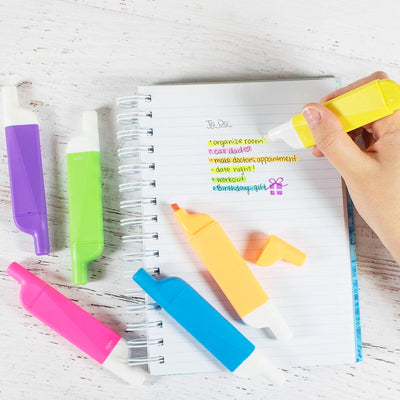 To Do
• organize room
• call dad
• make doctors appointment
• date night!
• workout
• Birthday gift